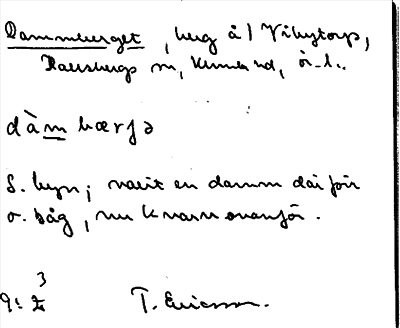 Dammberget, berg å l Vibytorp,
Hallsbergs sn, Kumla hd, ör. l.
dàm bærjə
S. byn; varit en damm där för
o. såg, nu kvarn ovanför.
9: 3
T. Ericsson.